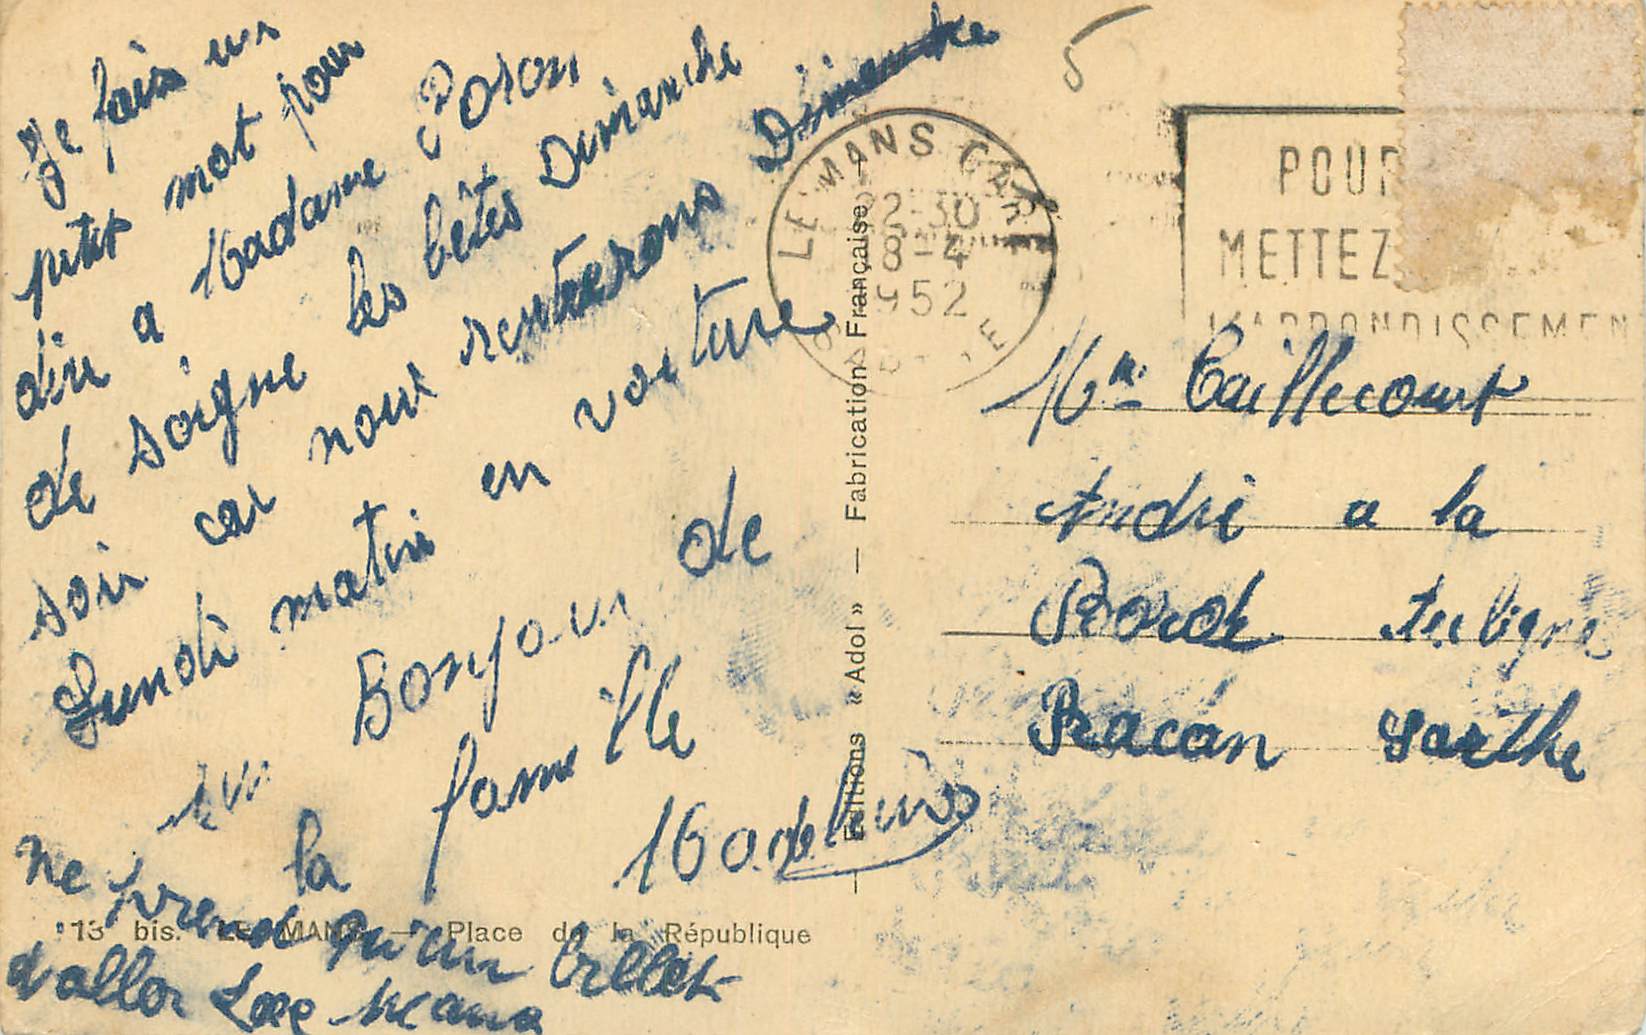 Je fais un
petit mot pour
dire a Madame Poron
de soigne les bêtes Dimanche
soir car nous rentrerons
Lundi matin en voiture
un Bonjour de
la famille
Madeleine
ne prend qu'un billet
d'aller Le Mans
13 bis. LE MANS — Place de la République
Editions « Adol » — Fabrication Française
5
LE MANS GARE
22-30
8-4
1952
POUR
METTEZ
L'ARRONDISSEMEN
Mr Taillecourt
André a la
Borde Aubigné
Racan Sarthe